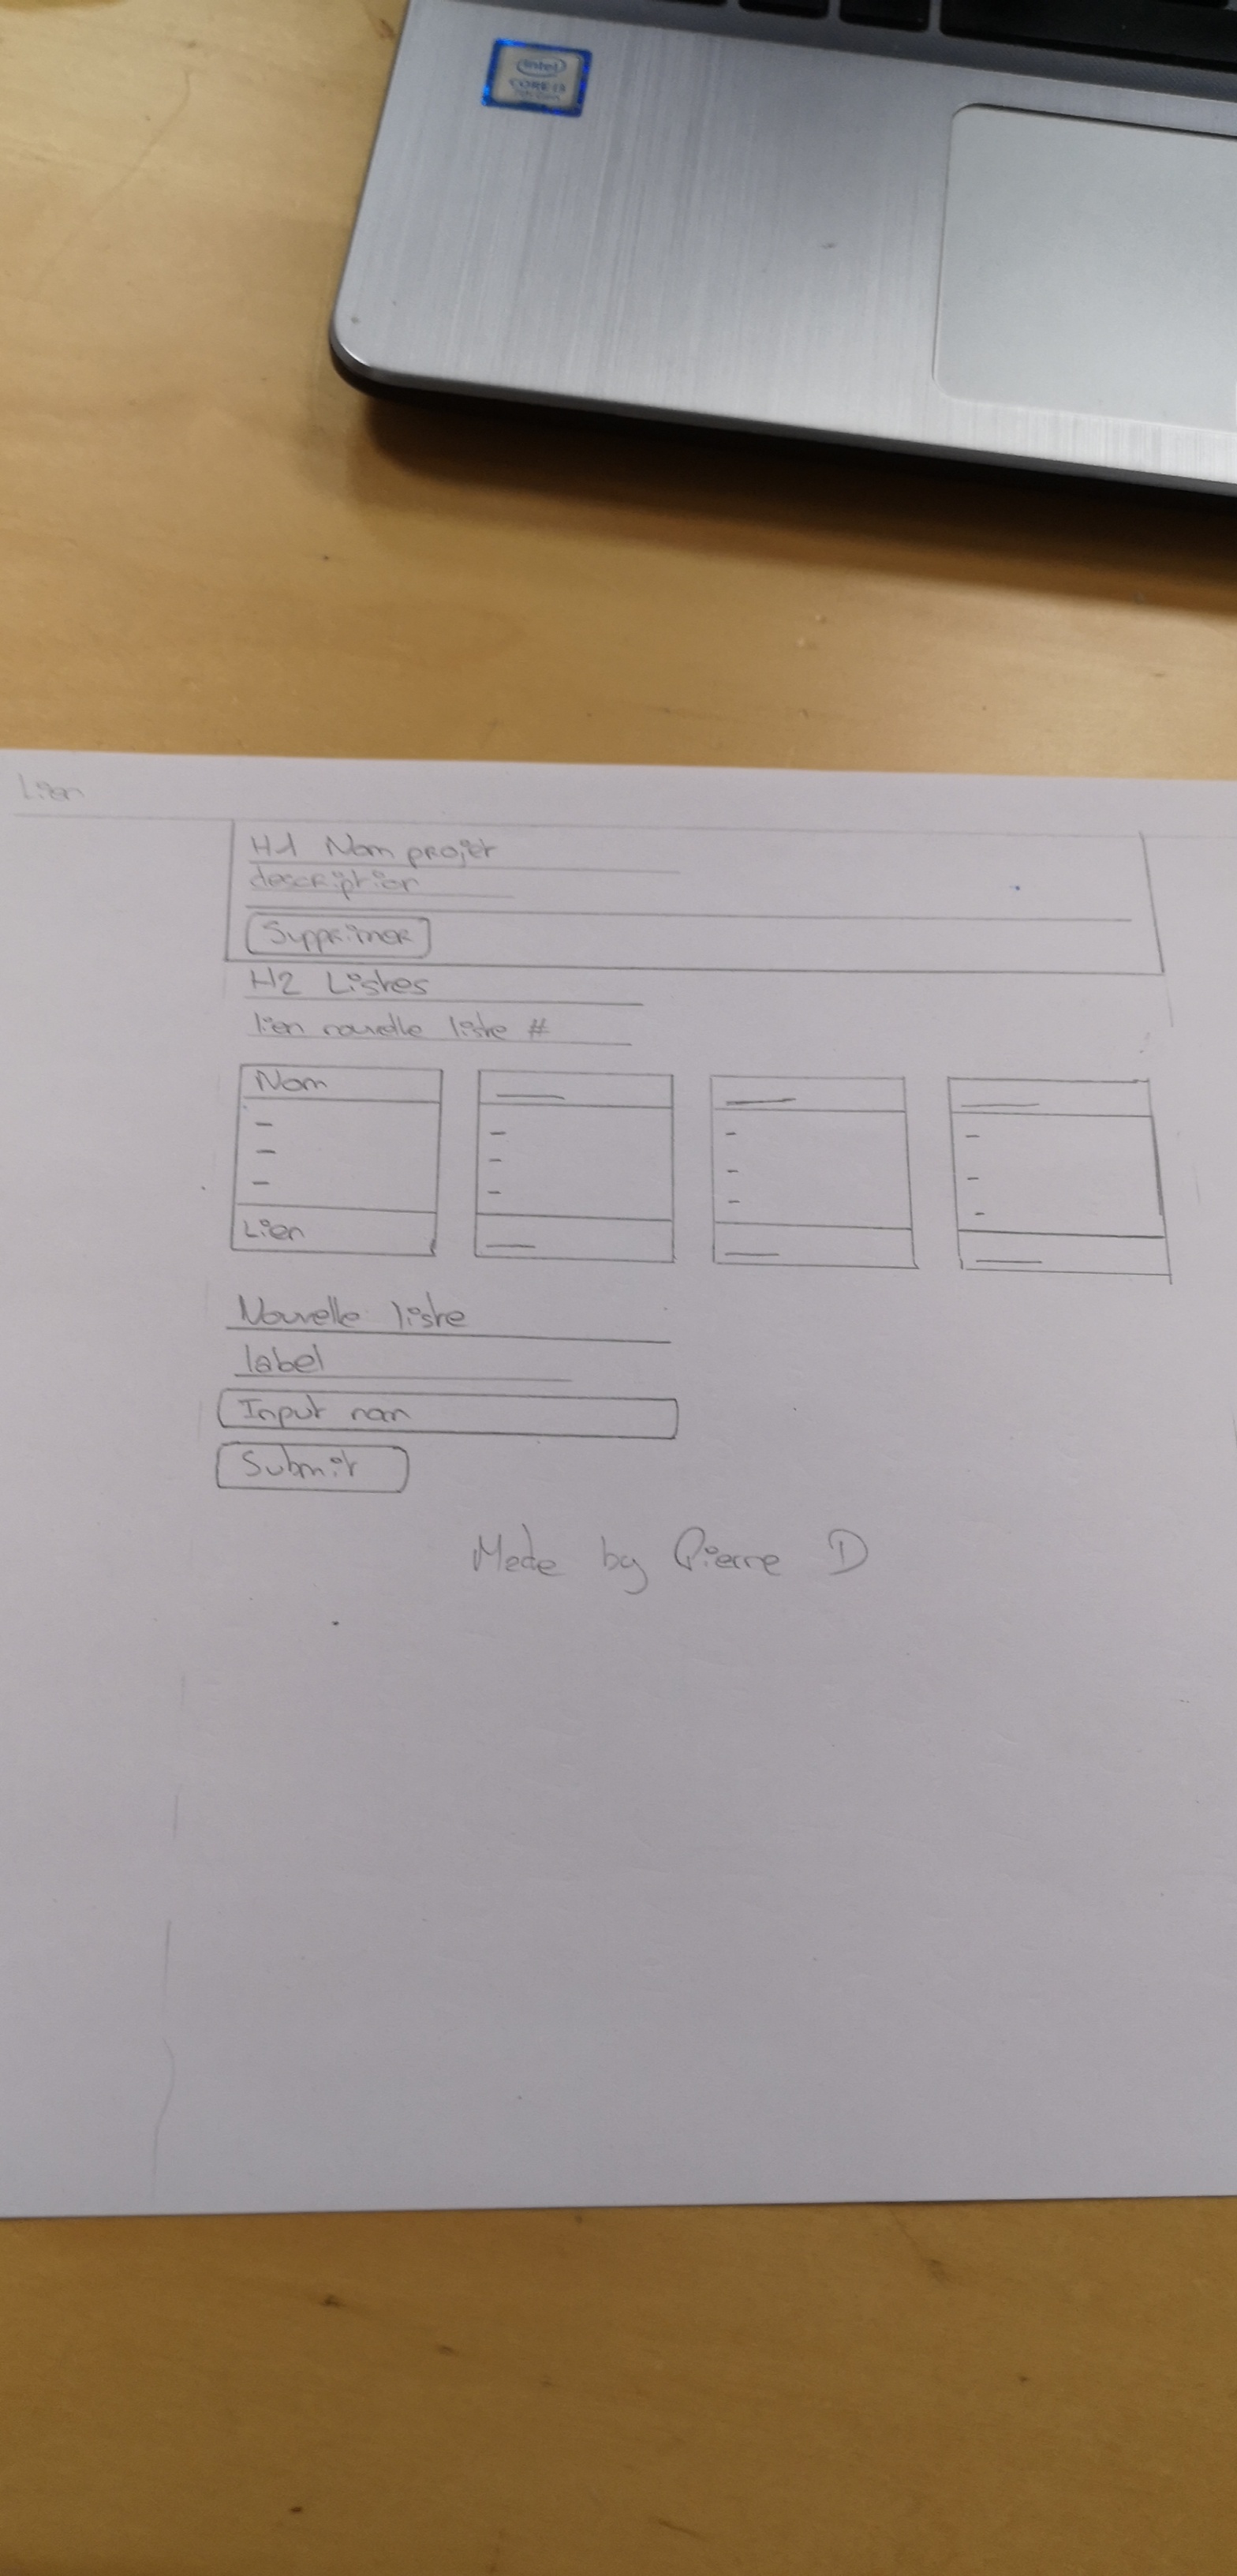 intel
CORE i3
Lien
H1 Nom projet
description
Supprimer
H2 Listes
lien nouvelle liste #
Nom
Lien
Nouvelle liste
label
Input nom
Submit
Made by Pierre D